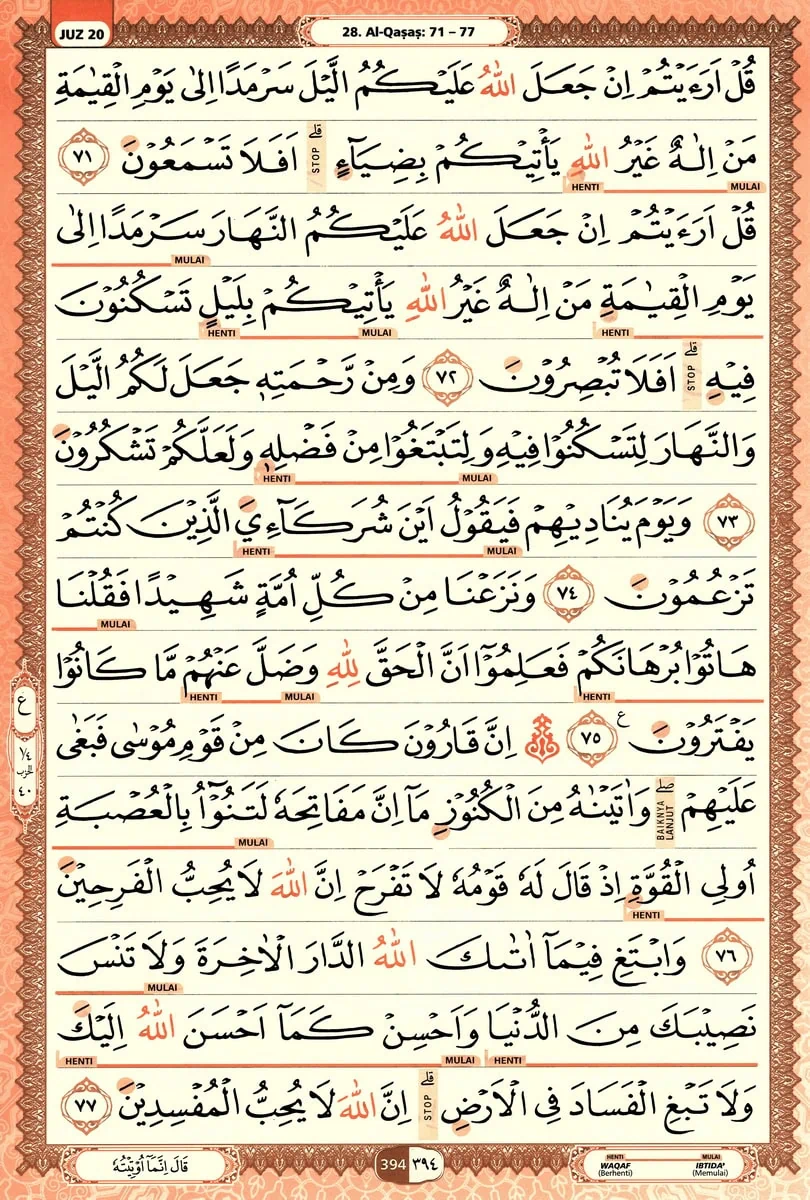 JUZ 20
28. Al-Qaṣaṣ: 71 – 77
قُلْ اَرَءَيْتُمْ اِنْ جَعَلَ اللّٰهُ عَلَيْكُمُ الَّيْلَ سَرْمَدًا اِلٰى يَوْمِ الْقِيٰمَةِ
مَنْ اِلٰهٌ غَيْرُ اللّٰهِ يَأْتِيْكُمْ بِضِيَاۤءٍ ۗ STOP اَفَلَا تَسْمَعُوْنَ ٧١
HENTI MULAI
قُلْ اَرَءَيْتُمْ اِنْ جَعَلَ اللّٰهُ عَلَيْكُمُ النَّهَارَ سَرْمَدًا اِلٰى
MULAI
يَوْمِ الْقِيٰمَةِ مَنْ اِلٰهٌ غَيْرُ اللّٰهِ يَأْتِيْكُمْ بِلَيْلٍ تَسْكُنُوْنَ
HENTI MULAI HENTI
فِيْهِ ۗ STOP اَفَلَا تُبْصِرُوْنَ ٧٢ وَمِنْ رَّحْمَتِهٖ جَعَلَ لَكُمُ الَّيْلَ
وَالنَّهَارَ لِتَسْكُنُوْا فِيْهِ وَلِتَبْتَغُوْا مِنْ فَضْلِهٖ وَلَعَلَّكُمْ تَشْكُرُوْنَ
HENTI MULAI
٧٣ وَيَوْمَ يُنَادِيْهِمْ فَيَقُوْلُ اَيْنَ شُرَكَاۤءِيَ الَّذِيْنَ كُنْتُمْ
HENTI MULAI
تَزْعُمُوْنَ ٧٤ وَنَزَعْنَا مِنْ كُلِّ اُمَّةٍ شَهِيْدًا فَقُلْنَا
MULAI
هَاتُوْا بُرْهَانَكُمْ فَعَلِمُوْٓا اَنَّ الْحَقَّ لِلّٰهِ وَضَلَّ عَنْهُمْ مَّا كَانُوْا
HENTI MULAI HENTI
يَفْتَرُوْنَ ࣖ ٧٥ اِنَّ قَارُوْنَ كَانَ مِنْ قَوْمِ مُوْسٰى فَبَغٰى
عَلَيْهِمْ ۖ BAIKNYA LANJUT وَاٰتَيْنٰهُ مِنَ الْكُنُوْزِ مَآ اِنَّ مَفَاتِحَهٗ لَتَنُوْۤاُ بِالْعُصْبَةِ
MULAI
اُولِى الْقُوَّةِ اِذْ قَالَ لَهٗ قَوْمُهٗ لَا تَفْرَحْ اِنَّ اللّٰهَ لَا يُحِبُّ الْفَرِحِيْنَ
HENTI
٧٦ وَابْتَغِ فِيْمَآ اٰتٰىكَ اللّٰهُ الدَّارَ الْاٰخِرَةَ وَلَا تَنْسَ
MULAI
نَصِيْبَكَ مِنَ الدُّنْيَا وَاَحْسِنْ كَمَآ اَحْسَنَ اللّٰهُ اِلَيْكَ
HENTI MULAI HENTI
وَلَا تَبْغِ الْفَسَادَ فِى الْاَرْضِ ۗ STOP اِنَّ اللّٰهَ لَا يُحِبُّ الْمُفْسِدِيْنَ ٧٧
ع
١/٤
الحزب
٤٠
قَالَ اِنَّمَآ اُوْتِيْتُهٗ
394 ٣٩٤
HENTI MULAI
WAQAF IBTIDA'
(Berhenti) (Memulai)